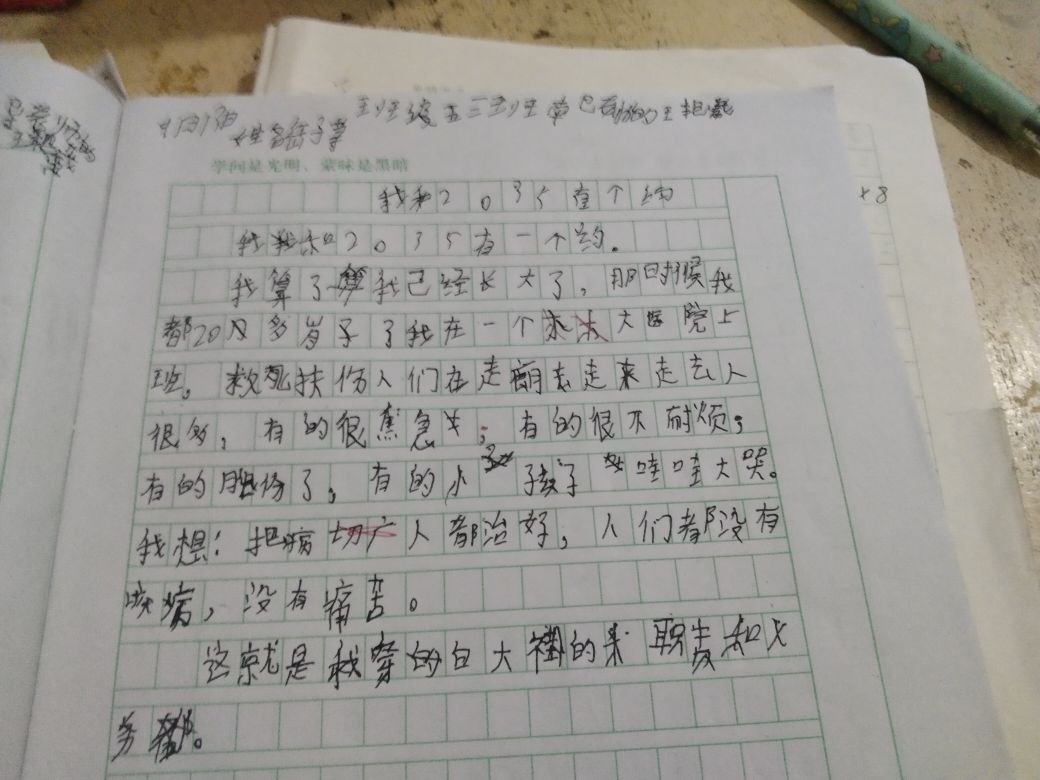 姓名岳子
学问是光明、蒙昧是黑暗
我和2035有个约
我和2035有一个约。
我算了算我已经长大了，那时候我
都20几多岁子了我在一个大医院上
班。救死扶伤人们在走廊走来走去人
很多，有的很焦急；有的很不耐烦；
有的腿伤了，有的小孩子哇哇大哭。
我想：把病人都治好，人们都没有
疾病，没有痛苦。
这就是我穿的白大褂的职责和
务。
+8